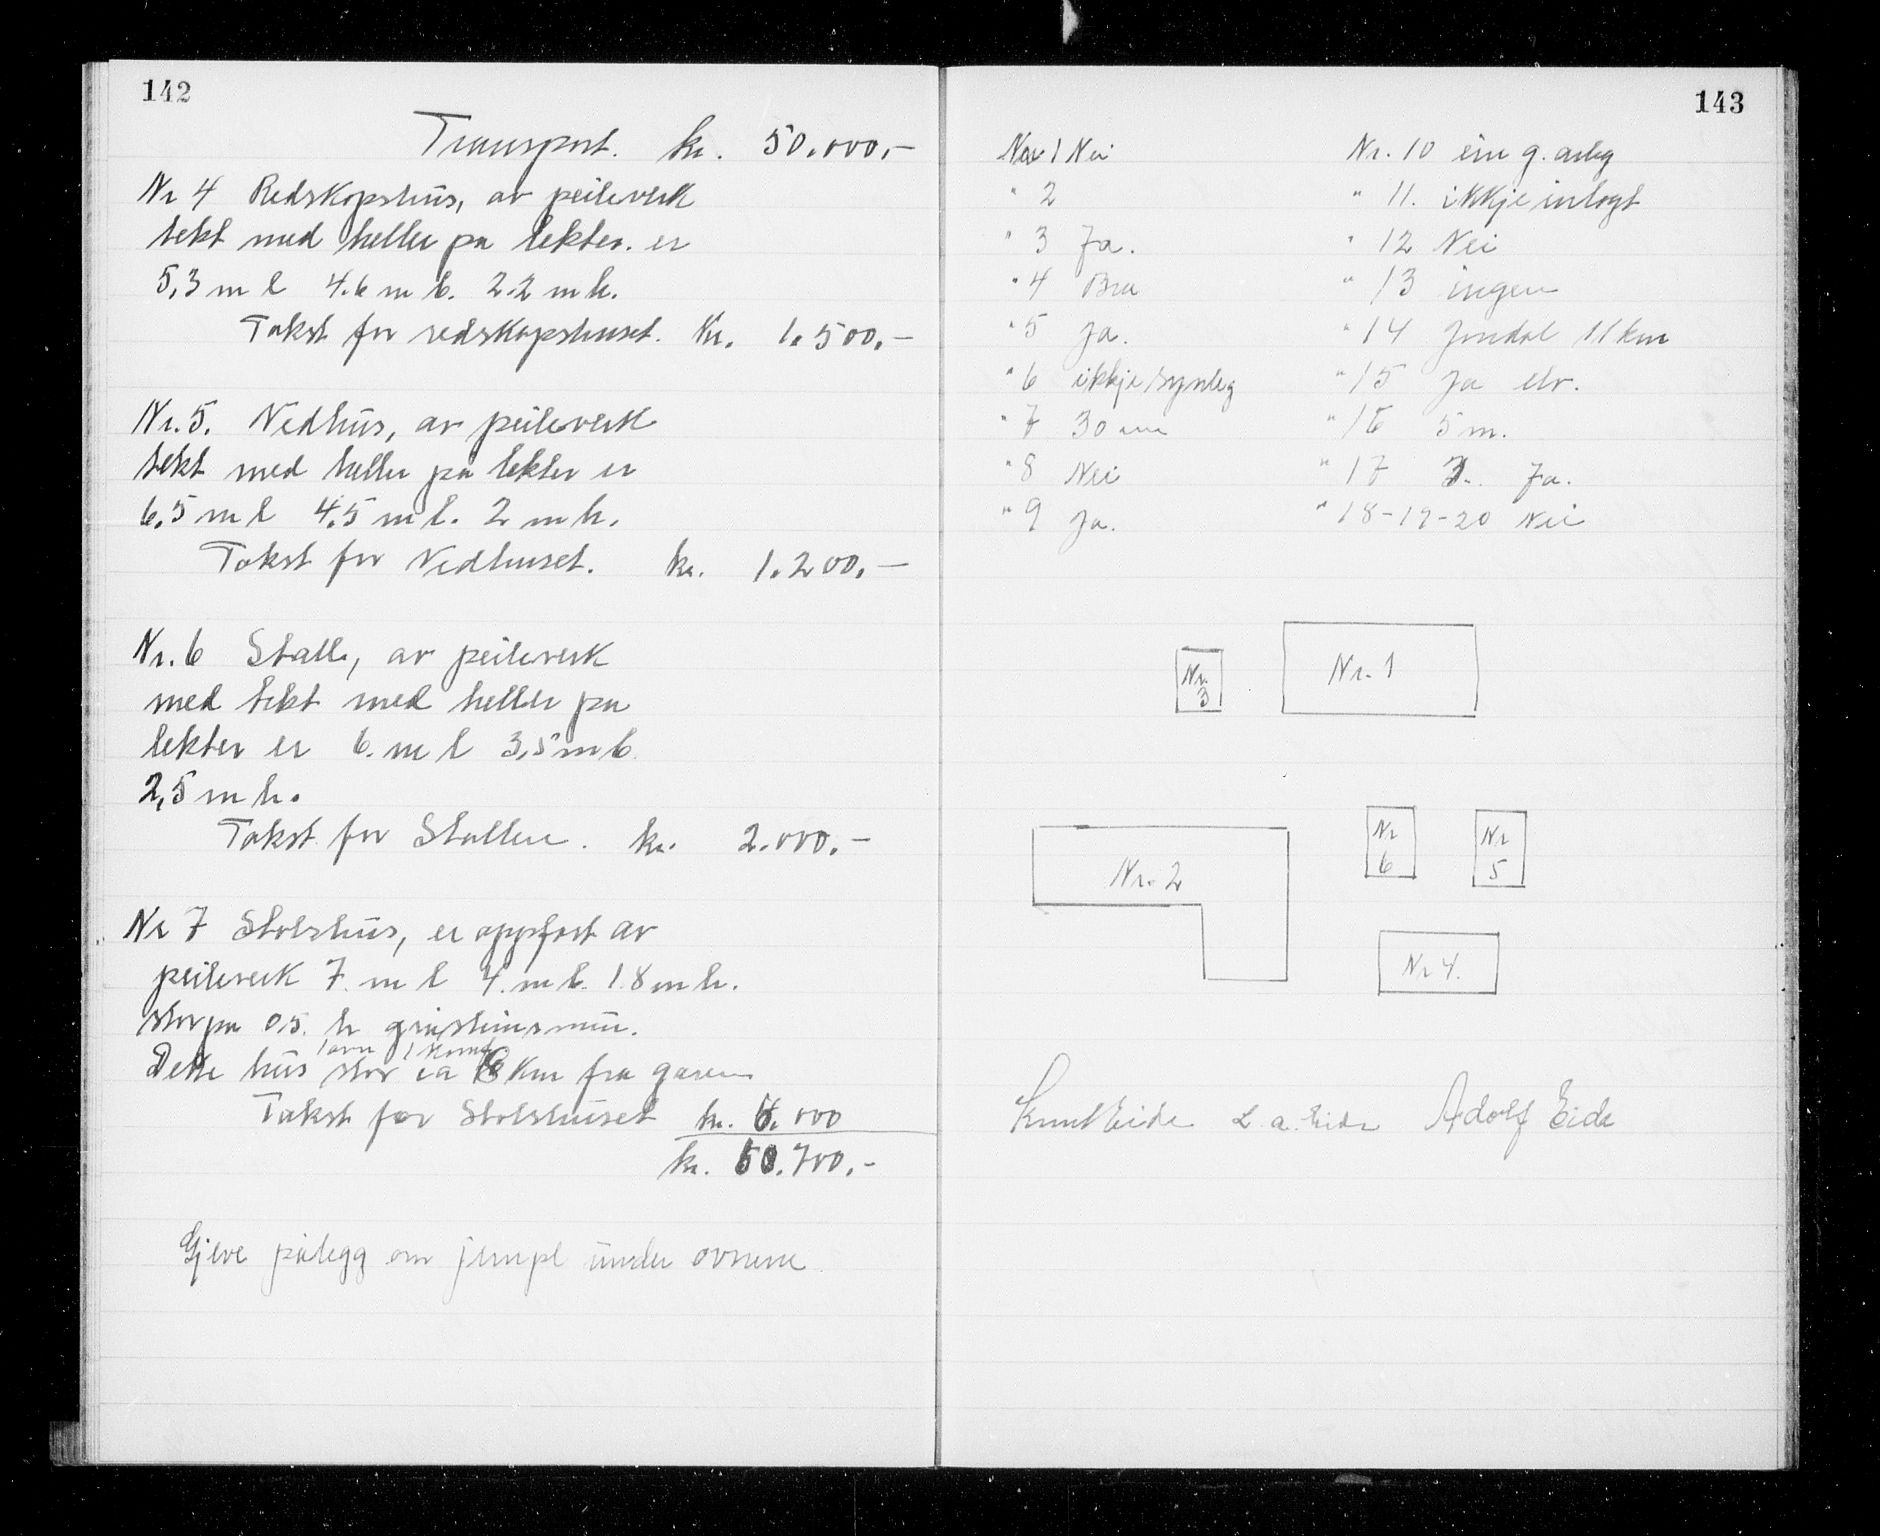 142
Transport. kr. 50.000.-
Nr 4 Redskapshus, av peileverk
tekt med heller på lekter. er
5,3 m l 4.6 m b. 2.2 m h.
Takst for redskapshuset. Kr. 1.500.-
Nr. 5. Vedhus, av peileverk
tekt med heller på lekter er
6,5 m l 4,5 m b. 2 m h.
Takst for Vedhuset. kr. 1.200.-
Nr. 6 Stall, av peileverk
med tekt med heller på
lekter er 6. m l 3,5 m b.
2,5 m h.
Takst for Stallen. kr. 2.000.-
Nr 7 Stølshus, er oppført av
peileverk 7. m l 4. m b. 1.8 m h.
står på 0.5. h gråsteinsmur.
1 ovn 1 komf
Dette hus står ca km fra garen
Takst for Stølshuset kr. 000
kr. .700.-
Gjeve pålegg om under ovnene
143
Nr 1 Nei
" 2
" 3 Ja.
" 4 Bra
" 5 Ja.
" 6 ikkje synleg
" 7 30 cm
" 8 Nei
" 9 Ja.
Nr. 10 ein g. anleg
" 11. ikkje inlagt
" 12 Nei
" 13 ingen
" 14 Jondal 11 km
" 15 Ja elv.
" 16 5 m.
" 17 Ja.
" 18-19-20 Nei
Nr. 3
Nr. 1
Nr. 2
Nr 6
Nr 5
Nr 4.
Knut Eide L. a. Eide Adolf Eide